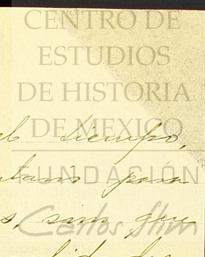 CENTRO DE
ESTUDIOS
DE HISTORIA
DE MEXICO
el tiempo,
para
FUNDACIÓN
s, sin que
Carlos Slim